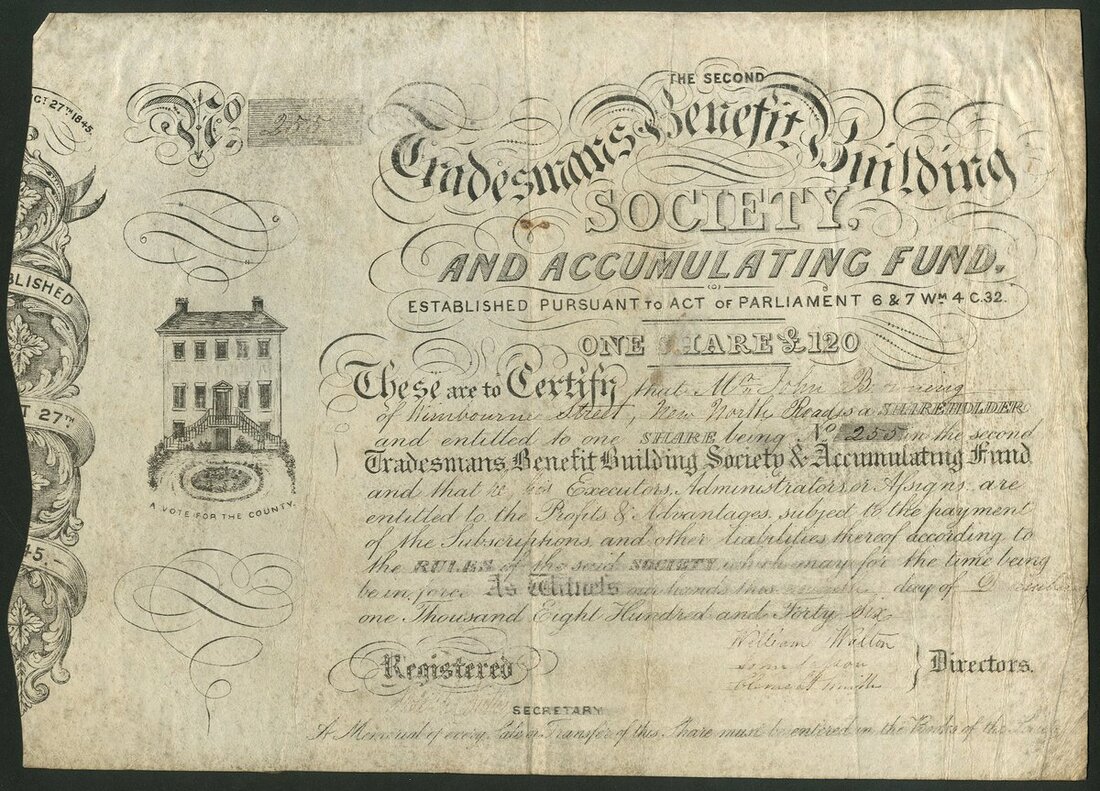 CT 27TH 1845.
BLISHED
T 27TH
45.
No. 255
A VOTE FOR THE COUNTY.
THE SECOND
Tradesmans Benefit Building
SOCIETY,
AND ACCUMULATING FUND.
ESTABLISHED PURSUANT TO ACT OF PARLIAMENT 6 & 7 WM 4 C.32.
ONE SHARE £120
These are to Certify that Mr John
of Wimbourne Street, New North Road is a SHAREHOLDER
and entitled to one SHARE being No 255 in the second
Tradesmans Benefit Building Society & Accumulating Fund
and that he his Executors, Administrators or Assigns, are
entitled to the Profits & Advantages, subject to the payment
of the Subscriptions, and other liabilities thereof according to
the RULES of the said SOCIETY which may for the time being
be in force As Witness our hands this day of December
one Thousand Eight Hundred and Forty Six
William Walton
Smith
Directors.
Registered
SECRETARY
A Memorial of every Sale or Transfer of this Share must be entered in the Books of the